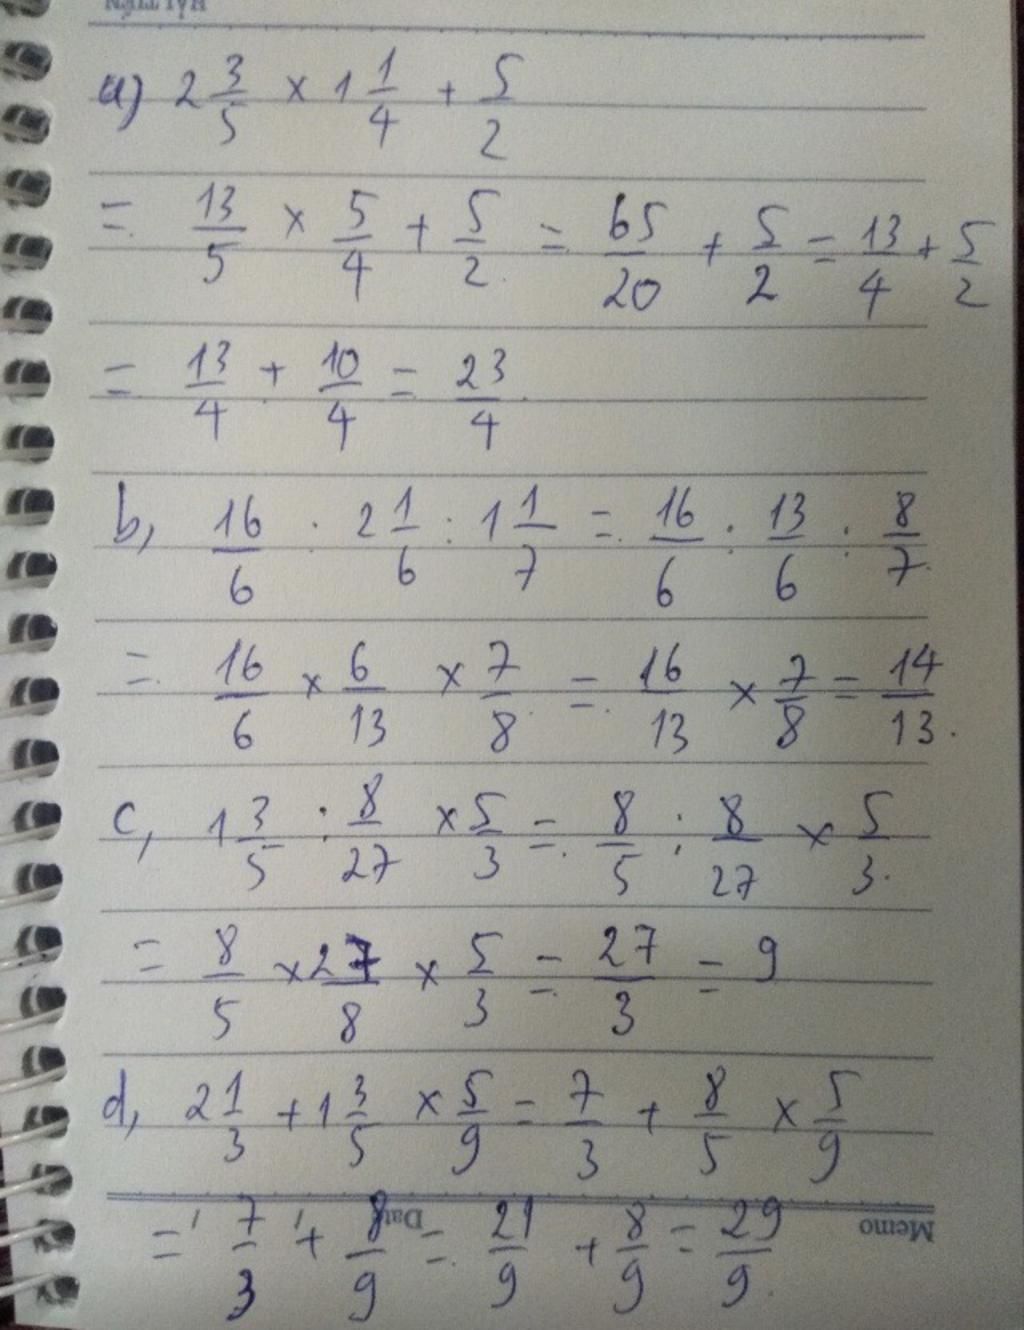 HẢI TIẾN
a) 2 3/5 × 1 1/4 + 5/2
= 13/5 × 5/4 + 5/2 = 65/20 + 5/2 = 13/4 + 5/2
= 13/4 + 10/4 = 23/4
b, 16/6 : 2 1/6 : 1 1/7 = 16/6 : 13/6 : 8/7
= 16/6 × 6/13 × 7/8 = 16/13 × 7/8 = 14/13.
c, 1 3/5 : 8/27 × 5/3 = 8/5 : 8/27 × 5/3
= 8/5 × 27/8 × 5/3 = 27/3 = 9
d, 2 1/3 + 1 3/5 × 5/9 = 7/3 + 8/5 × 5/9
= 7/3 + 8/9 = 21/9 + 8/9 = 29/9
Memo Date